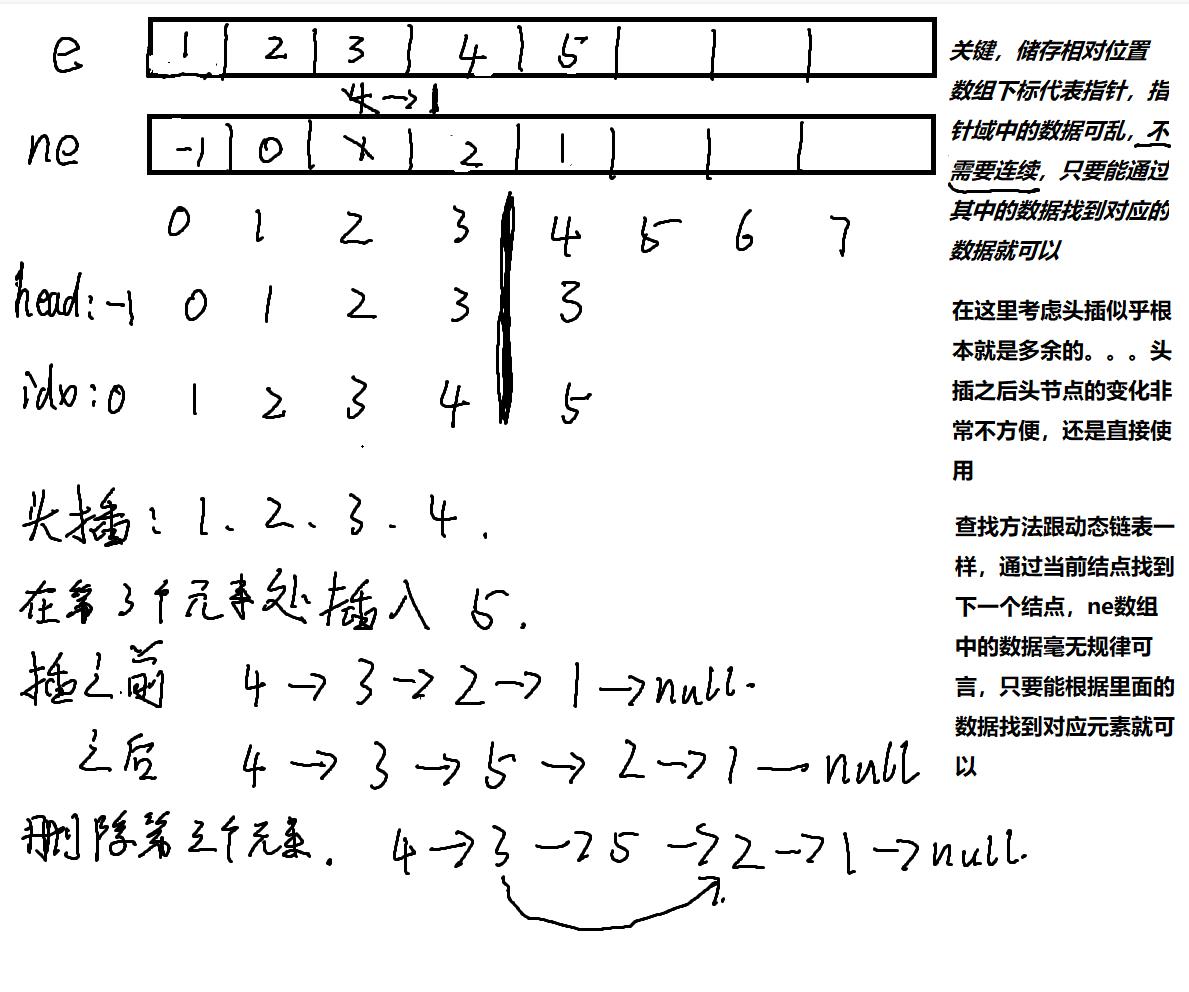 e 1 2 3 4 5
4→1
ne -1 0 2 1
0 1 2 3 4 5 6 7
head:-1 0 1 2 3 3
idx:0 1 2 3 4 5
头插:1、2、3、4.
在第3个元素处插入 5.
插之前 4→3→2→1→null.
之后 4→3→5→2→1→null
删除第三个元素. 4→3→5→2→1→null.
关键，储存相对位置
数组下标代表指针，指
针域中的数据可乱，不
需要连续，只要能通过
其中的数据找到对应的
数据就可以
在这里考虑头插似乎根
本就是多余的。。。头
插之后头节点的变化非
常不方便，还是直接使
用
查找方法跟动态链表一
样，通过当前结点找到
下一个结点，ne数组
中的数据毫无规律可
言，只要能根据里面的
数据找到对应元素就可
以